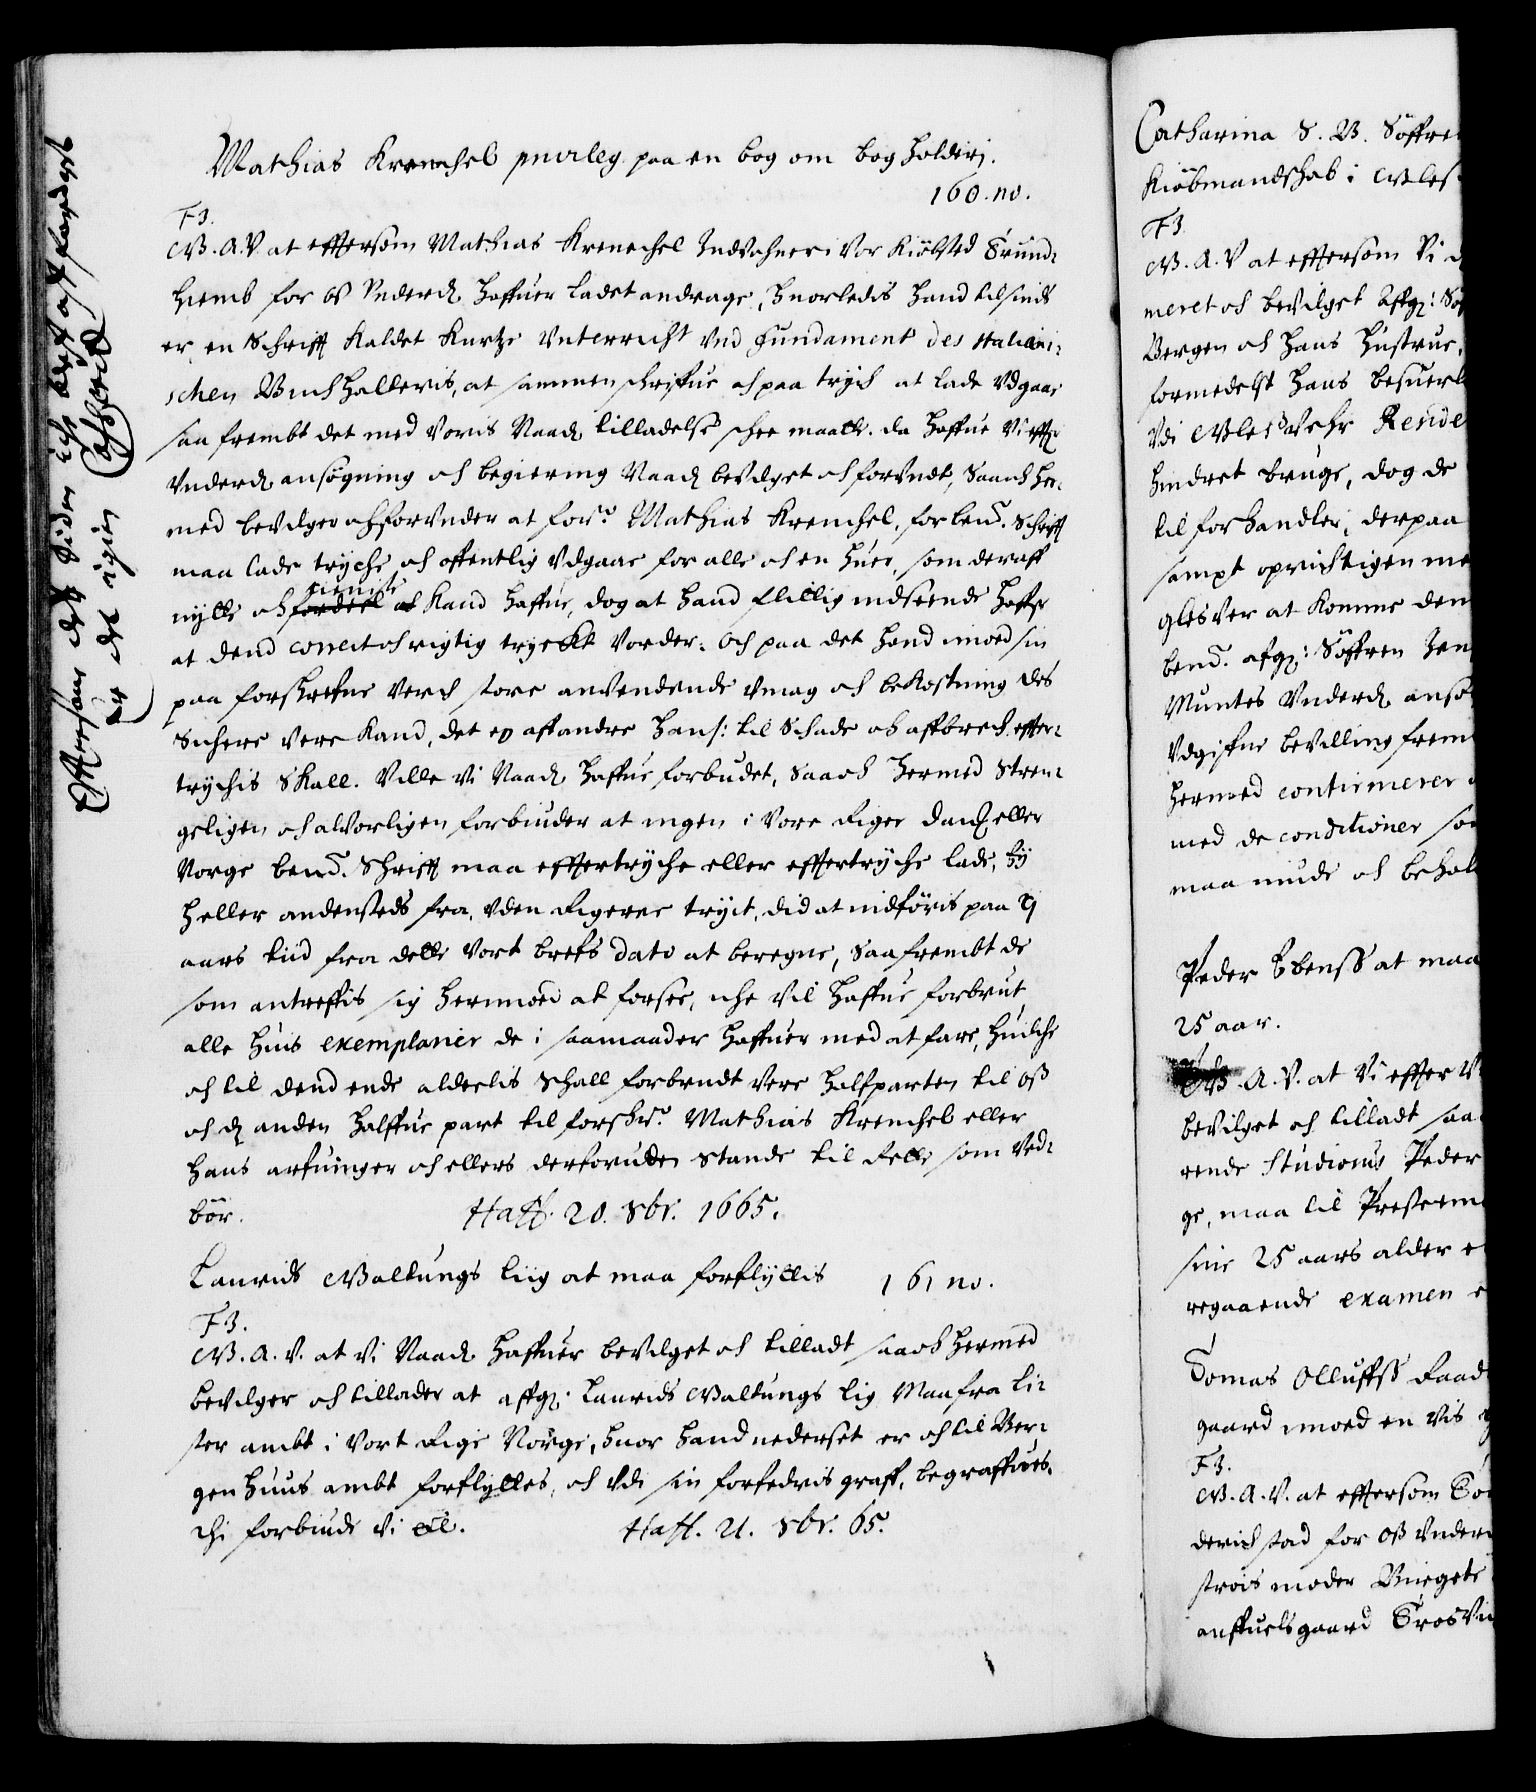 Mathias Krenchel privileg. paa en bog om bog holderj.
160. no.
F3.
W.A.V. at efftersom Mathias Krenechel Indvohner i Vor Kiøbsted Trund-
hiemb for oß Underd. haffuer ladet andrage, huorledis hand til sinds
er, en Schrifft kaldet Kurtze Unterricht und Fundament des Italiani-
schen Buchhalteris, at sammenschriffue och paa trych at lade udgaae
saafrembt det med Voris Naad. tilladelse schee maatte. da haffue Vi effter
Underd. ansøgning och begiering Naad. bevilget och forundt, Saa och her-
med bevilger och forunder at fors. Mathias Krenchel, forbend. Schrifft
maa lade tryche och offentlig udgaae for alle och en huer, som deraff
nytte och fordeel at tieniste kand haffue, dog at hand flittig indseende haffr
at dend correct och rigtig tryckt vorder. Och paa det hand imod sin
paa forskrefne verch store anvendende umag och bekostning des
Sichere vere kand, det ey aff andre hans: til Schade och affbrech effter-
trychis skall. Ville Vi Naad. haffue forbudet, Saa och hermed Stren-
geligen och alvorligen forbiuder at ingen i Vore Riger Danm. eller
Norge bend. Schrifft maa efftertryche eller efftertryche lade, Ey
heller andensteds fra, uden Rigerne tryct, did at indføris paa
aars tiid fra dette Vort brefs dato at beregne, Saafrembt de
som antreffis sig hermod at forsee, iche vil haffue forbrut
alle huis exemplarier de i saamaader haffuer med at fare, huilche
och til dend ende aldelis Schall forbrudt vere halfparten til oß
och d. anden halffue part til forschr. Mathias Krenchel eller
hans arfuinger och ellers derforuden stande til Rette som ved-
bør.
Haff. 20. 8br. 1665.
Laurids Waltungs liig at maa forflyttis
161 no.
F3.
W.A.V. at Vi Naad. haffuer bevilget och tilladt saa och hermed
bevilger och tillader at affg. Laurids Waltungs lig Maa fra Li-
ster ambt i Vort Rige Norge, huor hand nedersat er och til Ber-
genhuus ambt forflyttes, och udi sin forfedris graff, begraffues.
Thi forbiude Vi etc.
Haff. 21. 8br. 65.
Efftersom dette siden iche bleff aff ferdiget
er det igien Casserit
Catharina S. B. Søffre
Kiøbmandschab i Wles
F3
W.A.V at efftersom Vi
meret och bevilget Affg:
Bergen och hans hustrue,
formedelst hans besuer
udi Rende
hindret bruge, dog de
til forhandler, derpaa
sampt oprichtigen me
at komme den
bend. afg: Søffren Jen
Muntes Underd. ansø
udgifne bevilling frem
hermed confirmerer
med de conditioner so
maa niude och behol
Peder Ibenss at maa
25 aar.
W.A.V. at Vi effter V
bevilget och tilladt saa
rende Studiosus Peder
ge, maa til Presteem
sine 25 aars alder
regaaende examen
Tomas Olluffss Raad
gaard imod en vis
F3.
W.A.V. at efftersom To
derichstad for oß under
strois moder Birgete
anffuelsgaard Trosvi